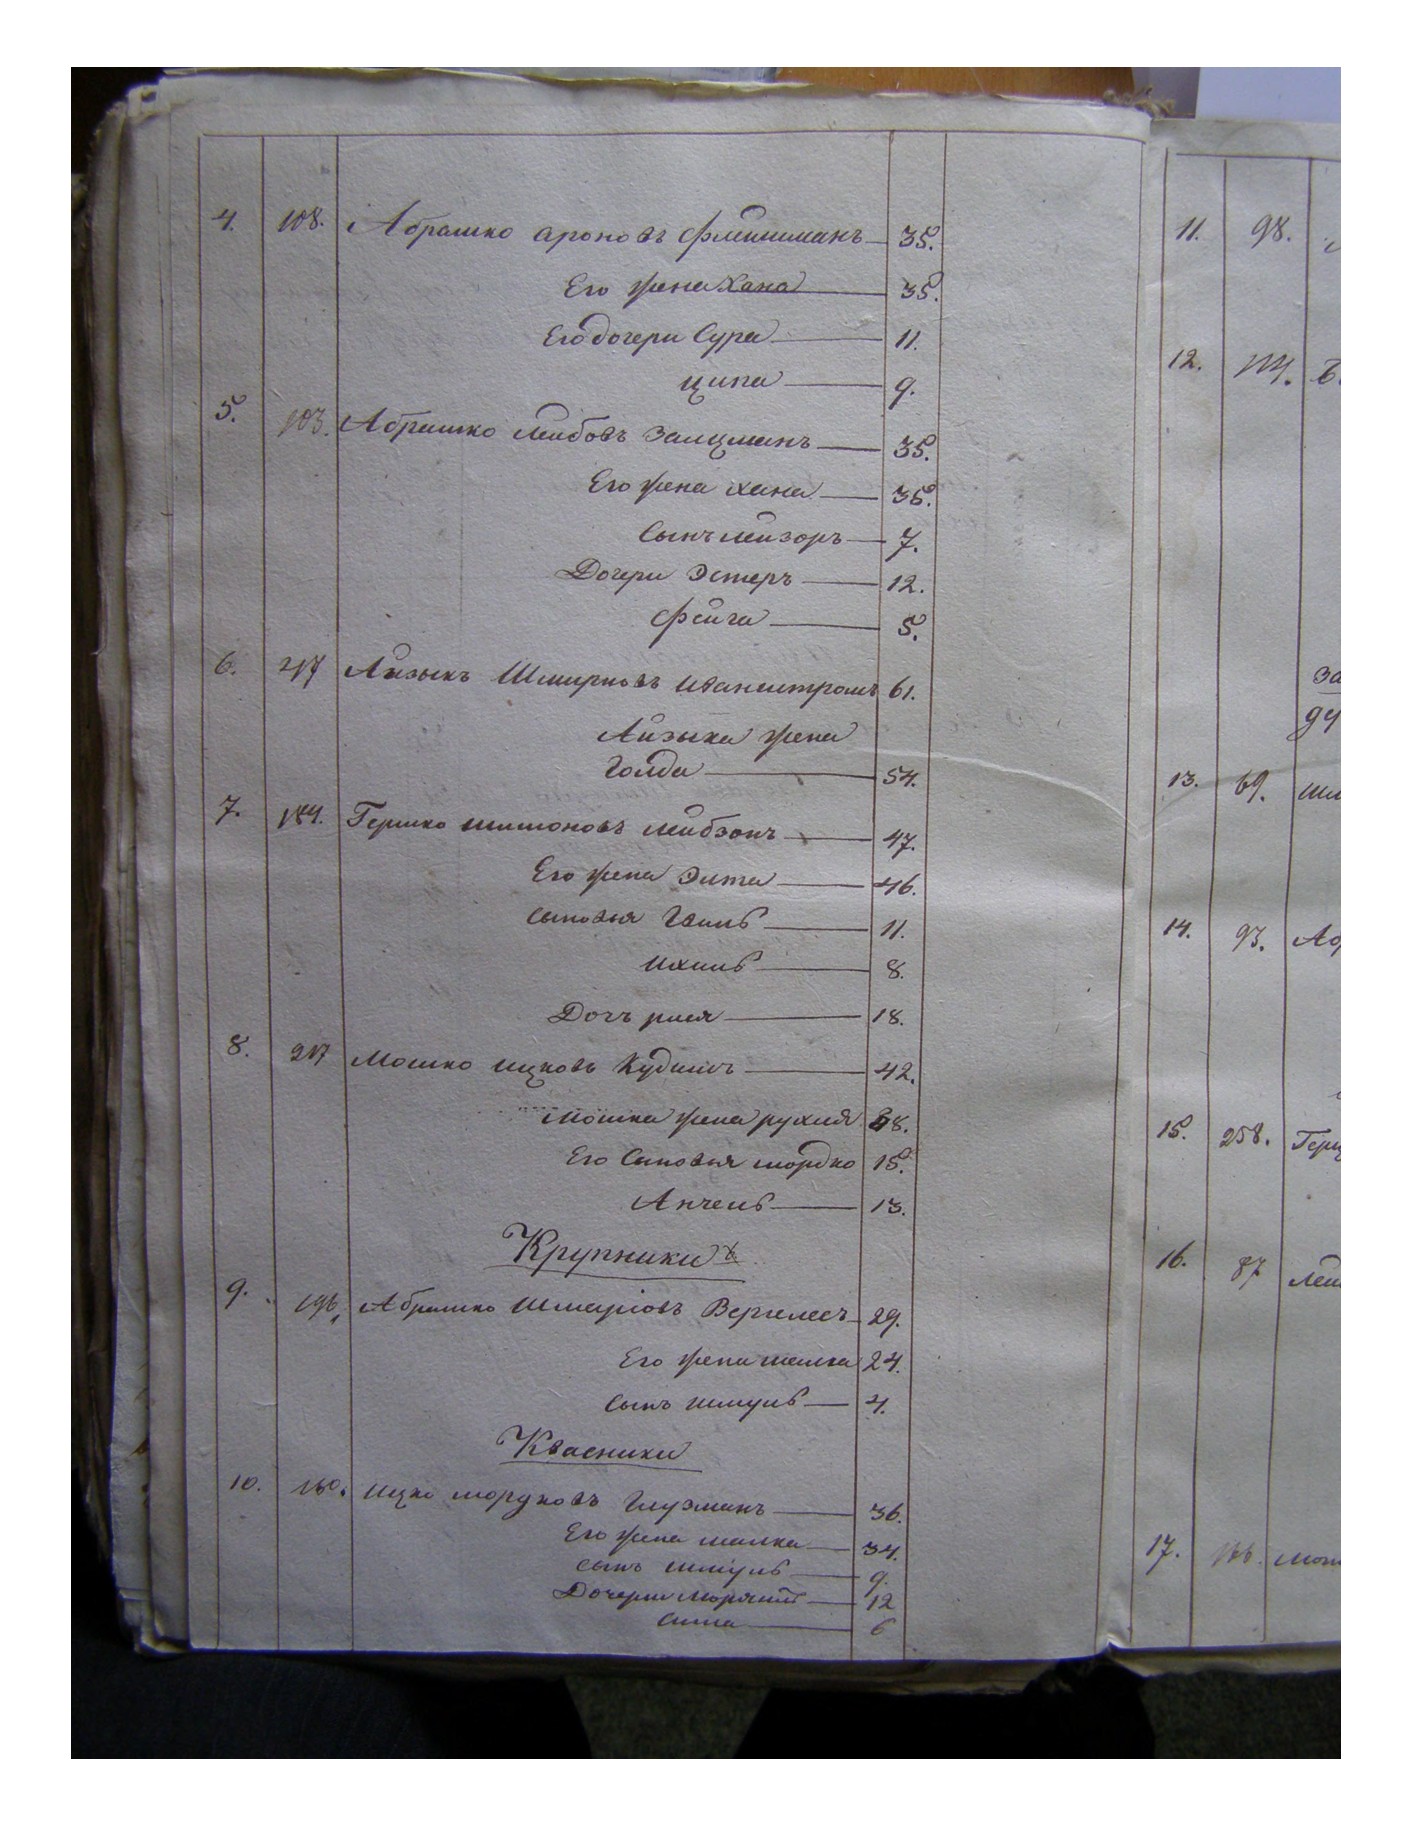 4. 108. Абрашко Ароновъ Флейшманъ 35.
Его жена Хана 35.
Его дочери Сура 11.
Ципа 9.
5. 103. Абрашко Лейбовъ Залцманъ 35.
Его жена Хана 35.
Сынъ Лейзоръ 7.
Дочери Эстеръ 12.
Фейга 5.
6. 217 Айзыкъ 61.
Айзыка жена
Голда 54.
7. 184. Гершко Шимоновъ Лейбзонъ 47.
Его жена 46.
Сыновья 11.
Ихиль 8.
Дочъ рися 18.
8. 217 Мошко Ицковъ 42.
Мошка жена рухля 38.
Его Сыновья мордко 15.
Анчель 13.
Крупники
9. 196. Абрашко 29.
Его жена малка 24.
Сынъ шмуль 4.
Квасники
10. 160. Ицко Мордковъ Глузманъ 36.
Его жена малка 34.
Сынъ шмуль 9.
Дочери 12
Сима 6
11. 98.
12.
За
13. 69.
14. 93.
15. 258.
16. 87
17. 166.